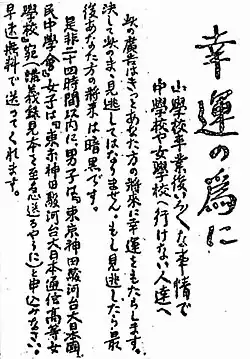 幸運の為に
小學校卒業後いろくな事情で
中學校や女學校へ行けない人達へ
此の廣告はきつとあなた方の將來に幸運をもたらします。
決して此のまゝ見逃してはなりません。もし見逃したら最
後あなた方の將來は暗黒です。
是非二十四時間以内に男子は「東京神田駿河台大日本國
民中學會」女子は「東京神田駿河台大日本通信高等女
學校」宛「講義録見本を至急送るやうに」と申込みなさい。
早速無料で送つてくれます。